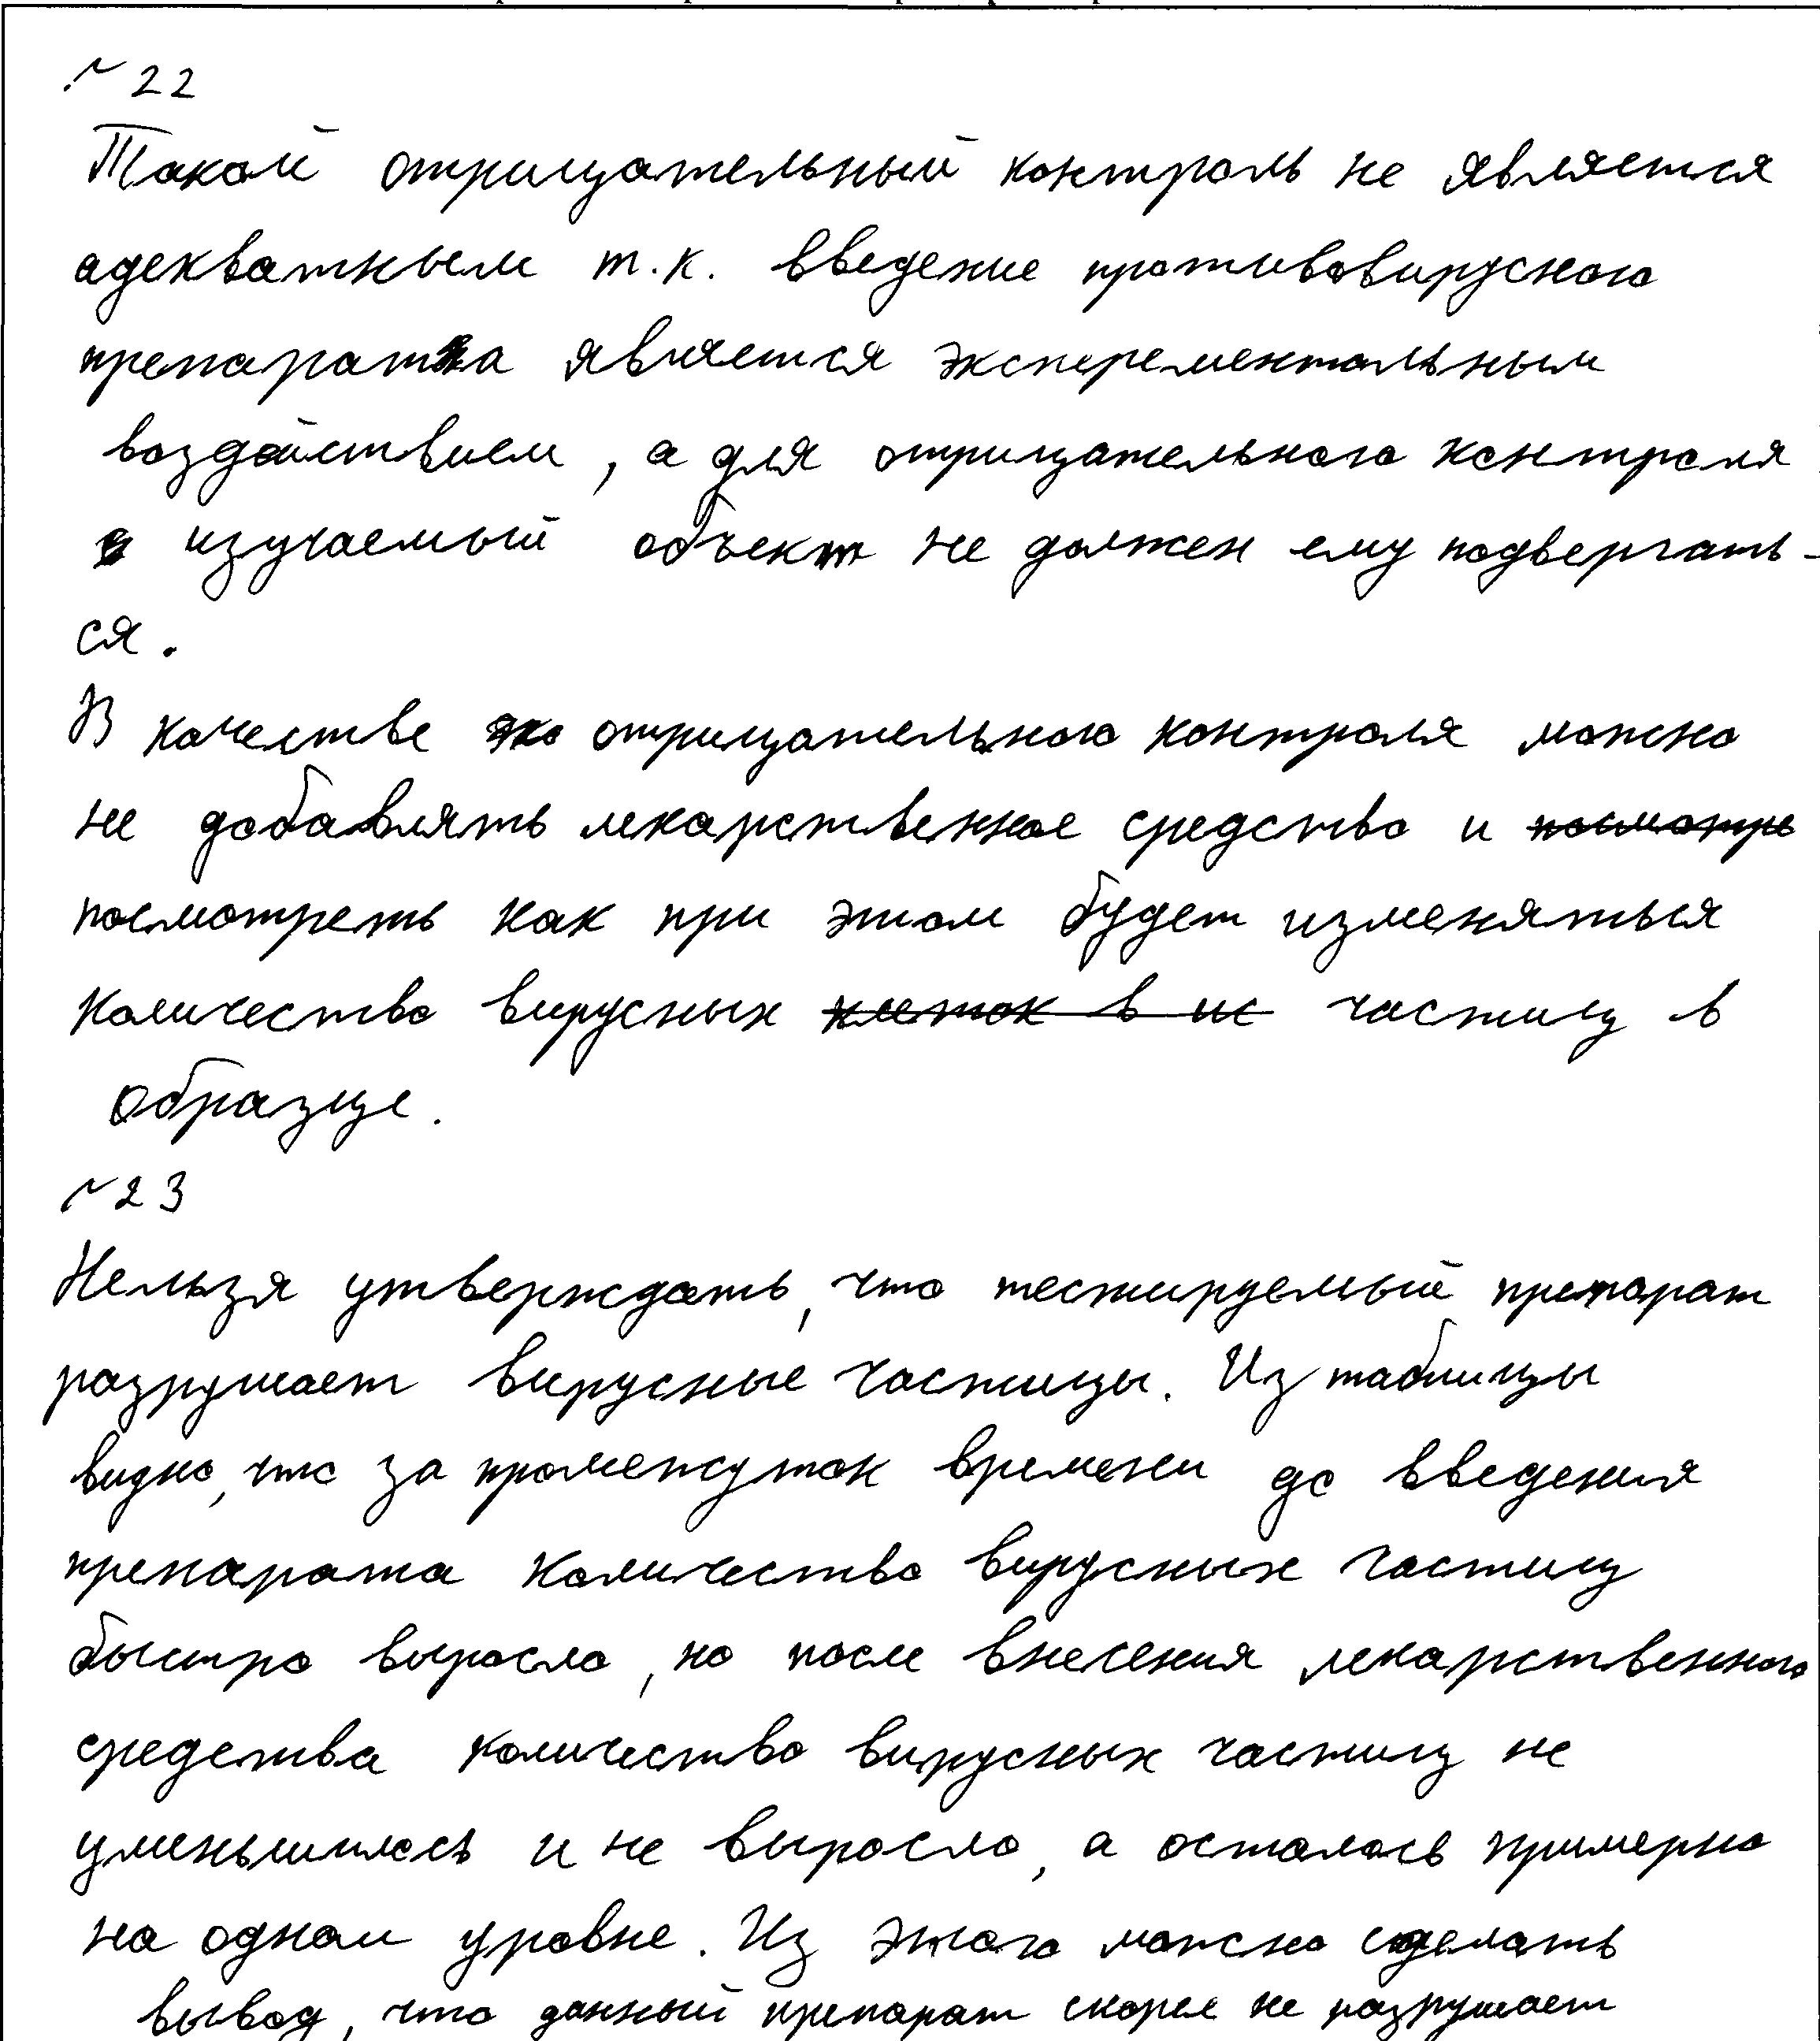 № 22
Такой отрицательный контроль не является
адекватным т.к. введение противовирусного
препарата является эксперементальным
воздействием, а для отрицательного контроля
изучаемый объект не должен ему подвергать-
ся.
В качестве отрицательного контроля можно
не добавлять лекарственное средство и посмотре
посмотреть как при этом будет изменяться
количество вирусных клеток в ис частиц в
образце.
№ 23
Нельзя утверждать, что тестируемый препарат
разрушает вирусные частицы. Из таблицы
видно, что за промежуток времени до введения
препарата количество вирусных частиц
быстро выросло, но после внесения лекарственного
средства количество вирусных частиц не
уменьшилось и не выросло, а осталось примерно
на одном уровне. Из этого можно сделать
вывод, что данный препарат скорее не разрушает